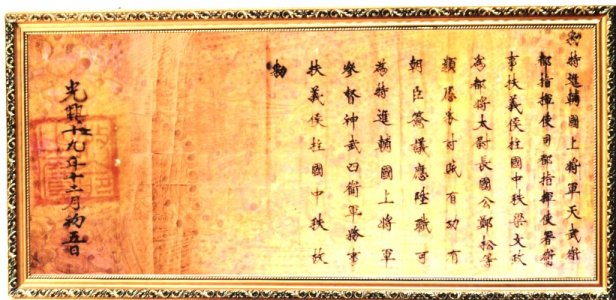 敕特進輔國上將軍天武衛
都指揮使司都指揮使署衛
事扶義侯柱國中秩梁文政
為都將太尉長國公鄭松等
討賊有功有
朝臣僉議應陞職可
為特進輔國上將軍
參督神武四衛軍務事
扶義侯柱國中秩故
敕
光興十九年十二月初五日